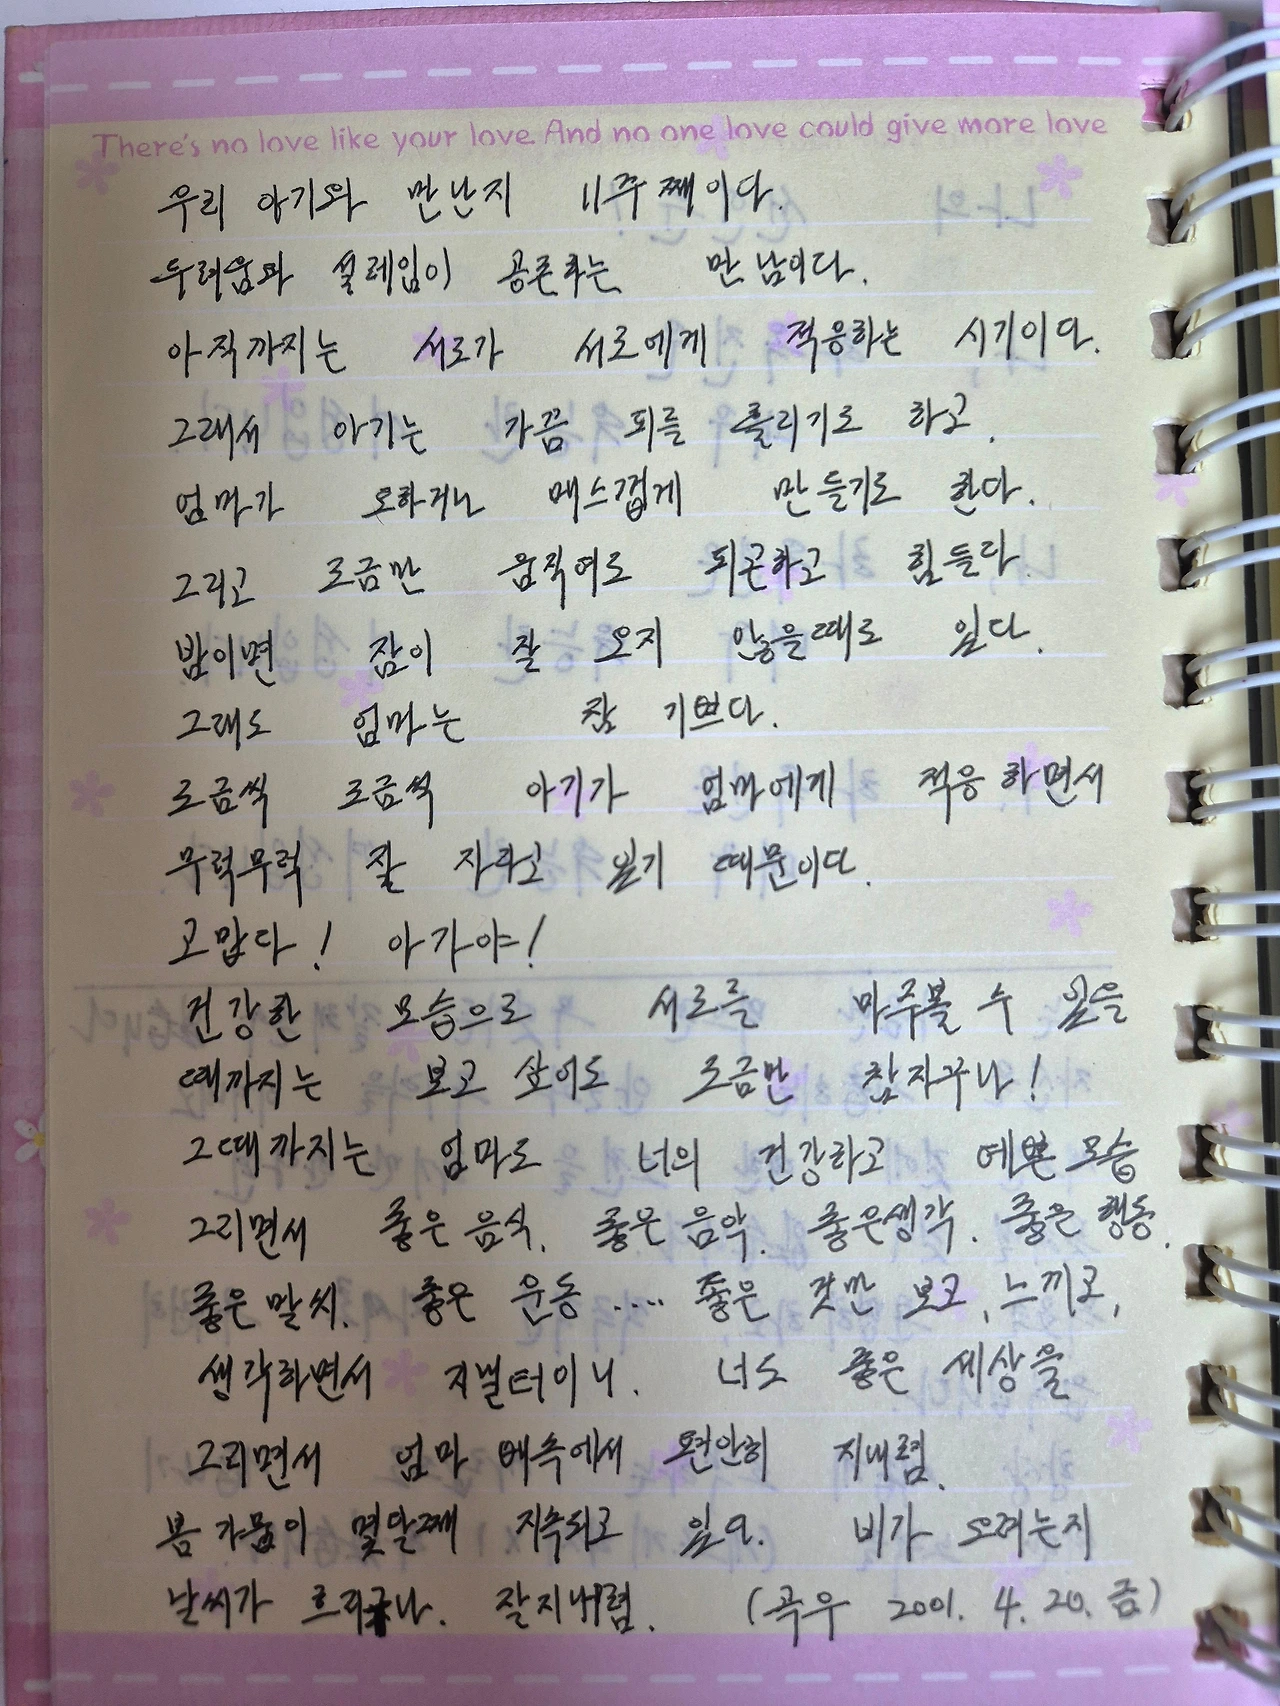 There's no love like your love. And no one love could give more love
우리 아기와 만난지 11주째이다.
두려움과 설레임이 공존하는 만남이다.
아직까지는 서로가 서로에게 적응하는 시기이다.
그래서 아기는 가끔 피를 흘리기도 하고,
엄마가 토하거나 메스껍게 만들기도 한다.
그리고 조금만 움직여도 피곤하고 힘들다.
밤이면 잠이 잘 오지 않을때도 있다.
그래도 엄마는 참 기쁘다.
조금씩 조금씩 아기가 엄마에게 적응하면서
무럭무럭 잘 자라고 있기 때문이다.
고맙다! 아가야!
건강한 모습으로 서로를 마주볼 수 있을
때까지는 보고 싶어도 조금만 참자꾸나!
그때까지는 엄마도 너의 건강하고 예쁜 모습
그리면서 좋은 음식. 좋은 음악. 좋은생각. 좋은 행동.
좋은 말씨. 좋은 운동 .... 좋은 것만 보고, 느끼고,
생각하면서 지낼터이니. 너도 좋은 세상을
그리면서 엄마 배속에서 편안히 지내렴.
봄 가뭄이 몇달째 지속되고 있다. 비가 오려는지
날씨가 흐리구나. 잘지내렴. (곡우 2001. 4. 20. 금)